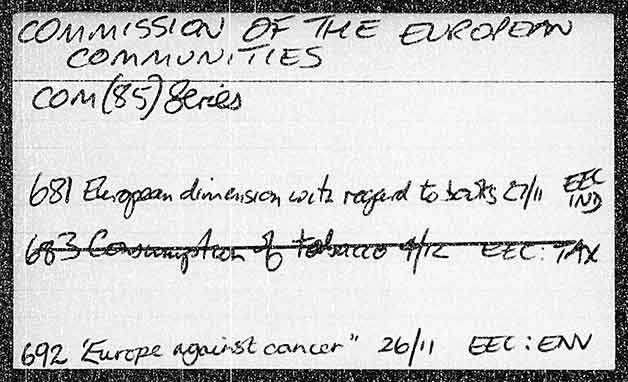 COMMISSION OF THE EUROPEAN
COMMUNITIES
COM(85) Series
681 European dimension with regard to books 27/11 EEC
IND
683 Consumption of tobacco 4/12 EEC: TAX
692 "Europe against cancer" 26/11 EEC: ENV